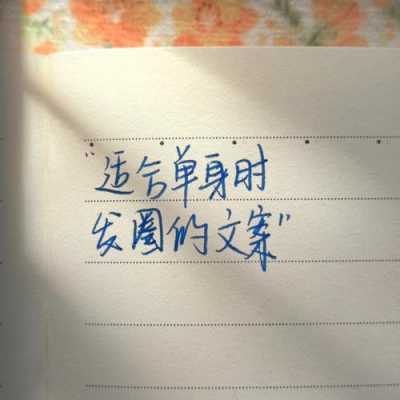 "适合单身时
发圈的文案"